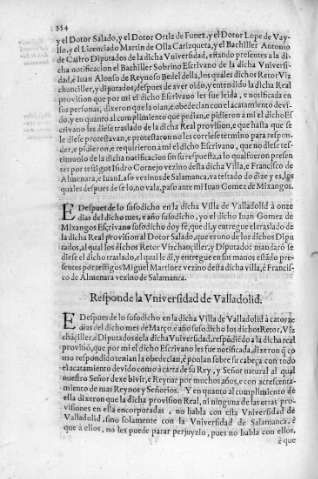 354
y el Dotor Salado, y el Dotor Ortiz de Funet, y el Dotor Lope de Vay-
llo, y el Licenciado Martin de Olla Carizqueta, y el Bachiller Antonio
de Castro Diputados de la dicha Vniuersidad, estando presentes a la di-
cha notificacion el Bachiller Sobrino Escriuano de la dicha Vniuersi-
dad, è Iuan Alonso de Reynoso Bedel della, los quales dichos Retor Viz
chanciller, y diputados, despues de auer oido, y entendido la dicha Real
prouision que por mi el dicho Escriuano les fue leida, e notificada en
sus personas, dixeron que la oian, è obedecian con el acatamiento deui-
do, y en quanto al cumplimiento que pedian, e pidieron a mi el dicho Es
criuano les diesse traslado de la dicha Real prouision, e que hasta que se
le diesse protestauan, e protestaron no les corriesse termino para respon-
der, e pidieron, e requirieron a mi el dicho Escriuano, que no diesse tes-
timonio de la dicha notificacion sin su respuesta, a lo qual fueron presen
tes por testigos Isidro Cornejo vezino desta dicha Villa, e Francisco de
Almenara, e Iuan Laso vezinos de Salamanca, va testado do dize y es, lo q
quales despues de se lo, no vala, paso ante mi Iuan Gomez de Mixangos.
E Despues de lo susodicho en la dicha Villa de Valladolid à onze
dias del dicho mes, e año susodicho, yo el dicho Iuan Gomez de
Mixangos Escriuano susodicho doy fe, que di, y entregue el traslado de
la dicha Real prouision al Dotor Salado, que es vno de los dichos Dipu
tados, al qual los dichos Retor Vizchanciller, y Diputados mandarõ se
diesse el dicho traslado, e lo qual le di, y entregue en sus manos estãdo pre-
sentes por testigos Miguel Martinez vezino desta dicha villa, è Francis-
co de Almenara vezino de Salamanca.
Responde la Vniuersidad de Valladolid.
E Despues de lo susodicho en la dicha Villa de Valladolid à catorze
dias del dicho mes de Março, e año susodicho los dichos Retor, Viz
chãciller, e Diputados de la dicha Vniuersidad, respõdiẽdo a la dicha real
prouisiõ, que por mi el dicho Escriuano les fue notificada, dixeron q̃ co
mo respondido tenian la obedeciã, è poniã sobre su cabeça con todo
el acatamiento deuido como à carta de su Rey, y Señor natural al qual
nuestro Señor dexe biuir, e Reynar por muchos años, e con acrescenta-
miento de mas Reynos y Señorios. Y en quanto al cumplimiento de
ella dixeron que la dicha prouision Real, ni ninguna de las otras pro-
uisiones en ella encorporadas, no habla con esta Vniuersidad de
Valladolid, sino solamente con la Vniuersidad de Salamanca, è
que à ellos, no les puede parar perjuyzio, pues no habla con ellos,
è que